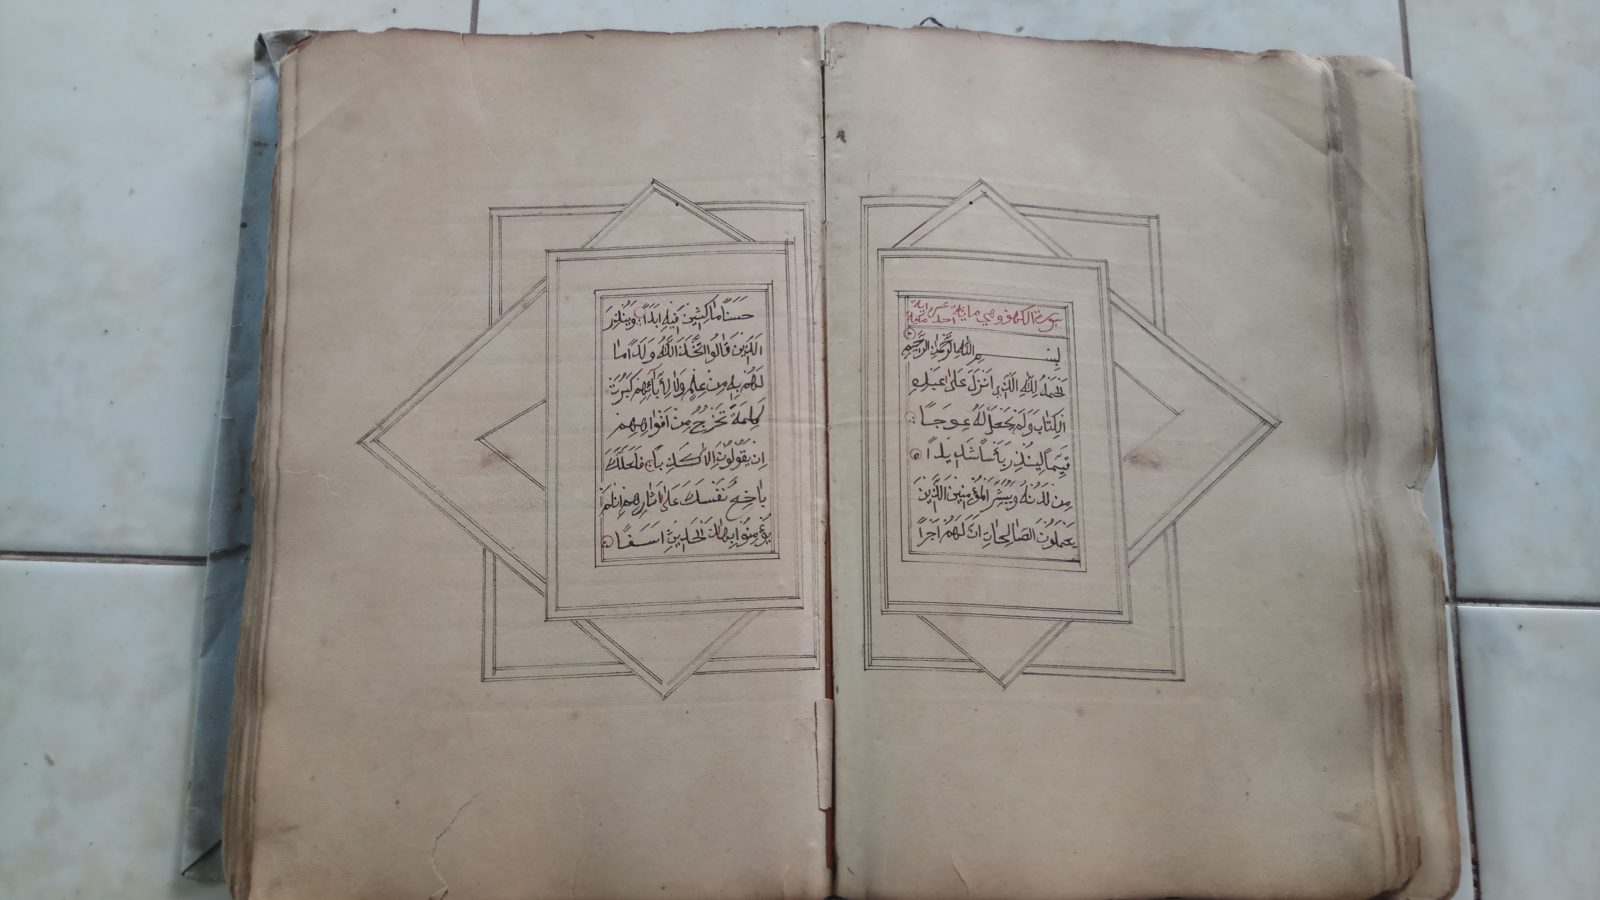 سورة الكهف وهي ماية احد عشره اية
بسم الله الرحمن الرحيم
اَلْحَمْدُ لِلّٰهِ الَّذِي اَنْزَلَ عَلٰى عَبْدِهِ
الْكِتَابَ وَلَمْ يَجْعَلْ لَهُ عِوَجًا
قَيِّمًا لِيُنْذِرَ بَأْسًا شَدِيْدًا
مِنْ لَدُنْهُ وَيُبَشِّرَ الْمُؤْمِنِيْنَ الَّذِيْنَ
يَعْمَلُوْنَ الصَّالِحَاتِ اَنَّ لَهُمْ اَجْرًا
حَسَنًا مَاكِثِيْنَ فِيْهِ اَبَدًا وَيُنْذِرَ
الَّذِيْنَ قَالُوا اتَّخَذَ اللّٰهُ وَلَدًا مَا
لَهُمْ بِهِ مِنْ عِلْمٍ وَلَا لِاٰبَائِهِمْ كَبُرَتْ
كَلِمَةً تَخْرُجُ مِنْ اَفْوَاهِهِمْ
اِنْ يَقُوْلُوْنَ اِلَّا كَذِبًا فَلَعَلَّكَ
بَاخِعٌ نَفْسَكَ عَلٰى اٰثَارِهِمْ اِنْ لَمْ
يُؤْمِنُوْا بِهٰذَا الْحَدِيْثِ اَسَفًا